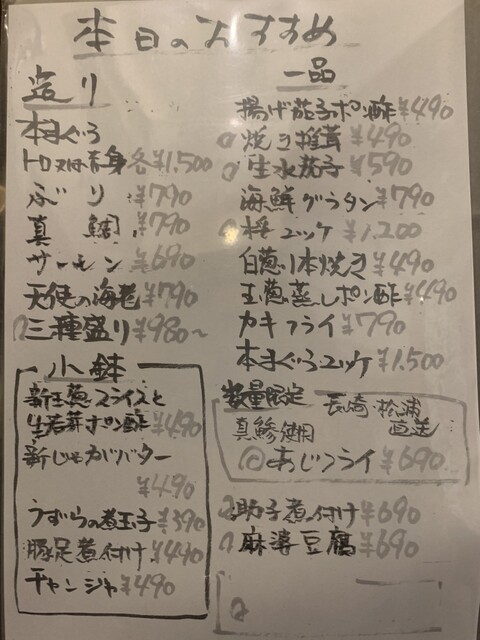 本日のおすすめ
造り
本まぐろ
トロ又は赤身 各¥1,500
ぶり ¥790
真鯛 ¥790
サーモン ¥690
天使の海老 ¥790
三種盛り ¥980〜
小鉢
新玉葱スライスと
生若芽ポン酢 ¥490
新じゃがバター
¥490
うずらの煮玉子 ¥390
豚足煮付け ¥440
チャンジャ ¥490
一品
揚げ茄子ポン酢 ¥490
焼き椎茸 ¥490
生水茄子 ¥590
海鮮グラタン ¥790
桜ユッケ ¥1,200
白葱1本焼き ¥490
玉葱蒸しポン酢 ¥490
カキフライ ¥790
本まぐろユッケ ¥1,500
数量限定
長崎・松浦
直送
真鯵使用
@あじフライ ¥690
助子煮付け ¥690
麻婆豆腐 ¥690